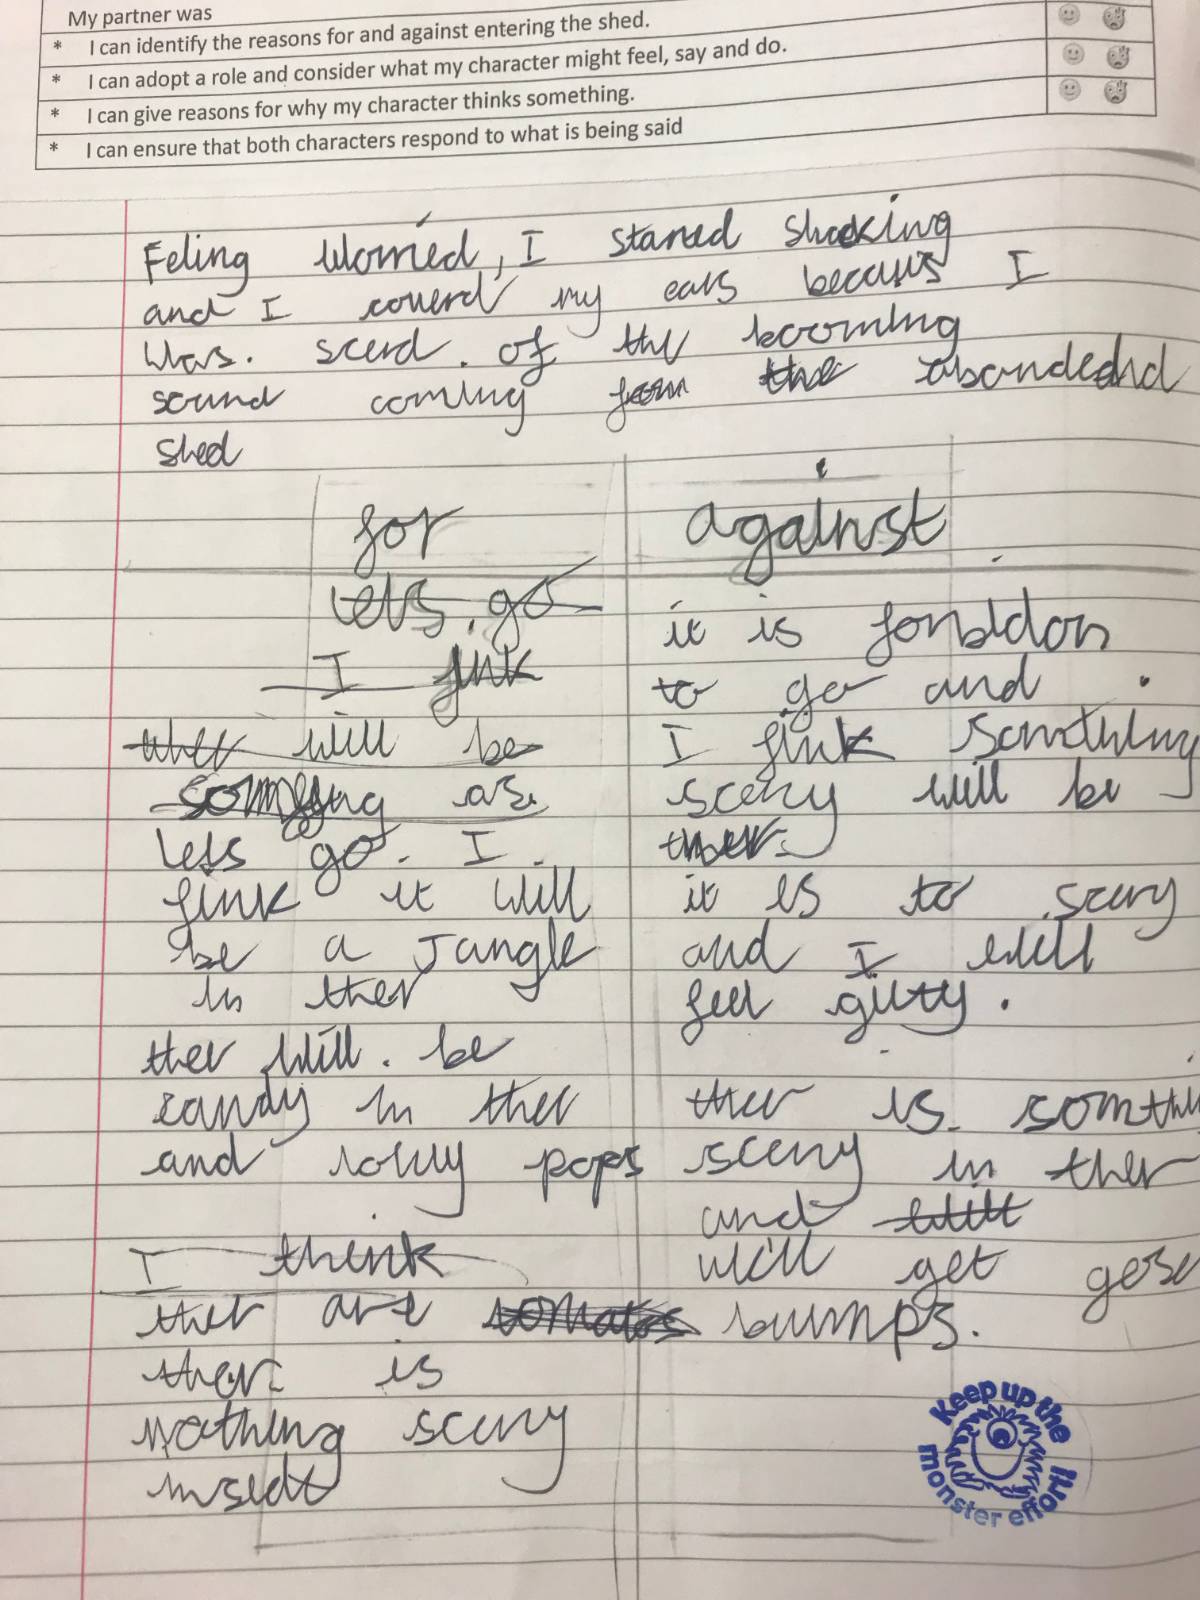 My partner was
* I can identify the reasons for and against entering the shed.
* I can adopt a role and consider what my character might feel, say and do.
* I can give reasons for why my character thinks something.
* I can ensure that both characters respond to what is being said
Feling Worried, I stared shacking
and I coverd my ears becaus I
was. scerd. of the booming
sound coming from the abandednd
shed
for
lets. go
I fink
ther will be
are
lets go. I.
fink it will
be a Jangle
in ther
ther will. be
candy in ther
and lolly pops
I think
ther are
ther is
nothing scery
insedt
against
it is forbiddon
to go and
I fink somthing
scery will be
ther.
it is to scery
and I will
feel gilty.
ther is somthi
scery in ther
and will
will get gose
bumps.
Keep up the
monster effort!